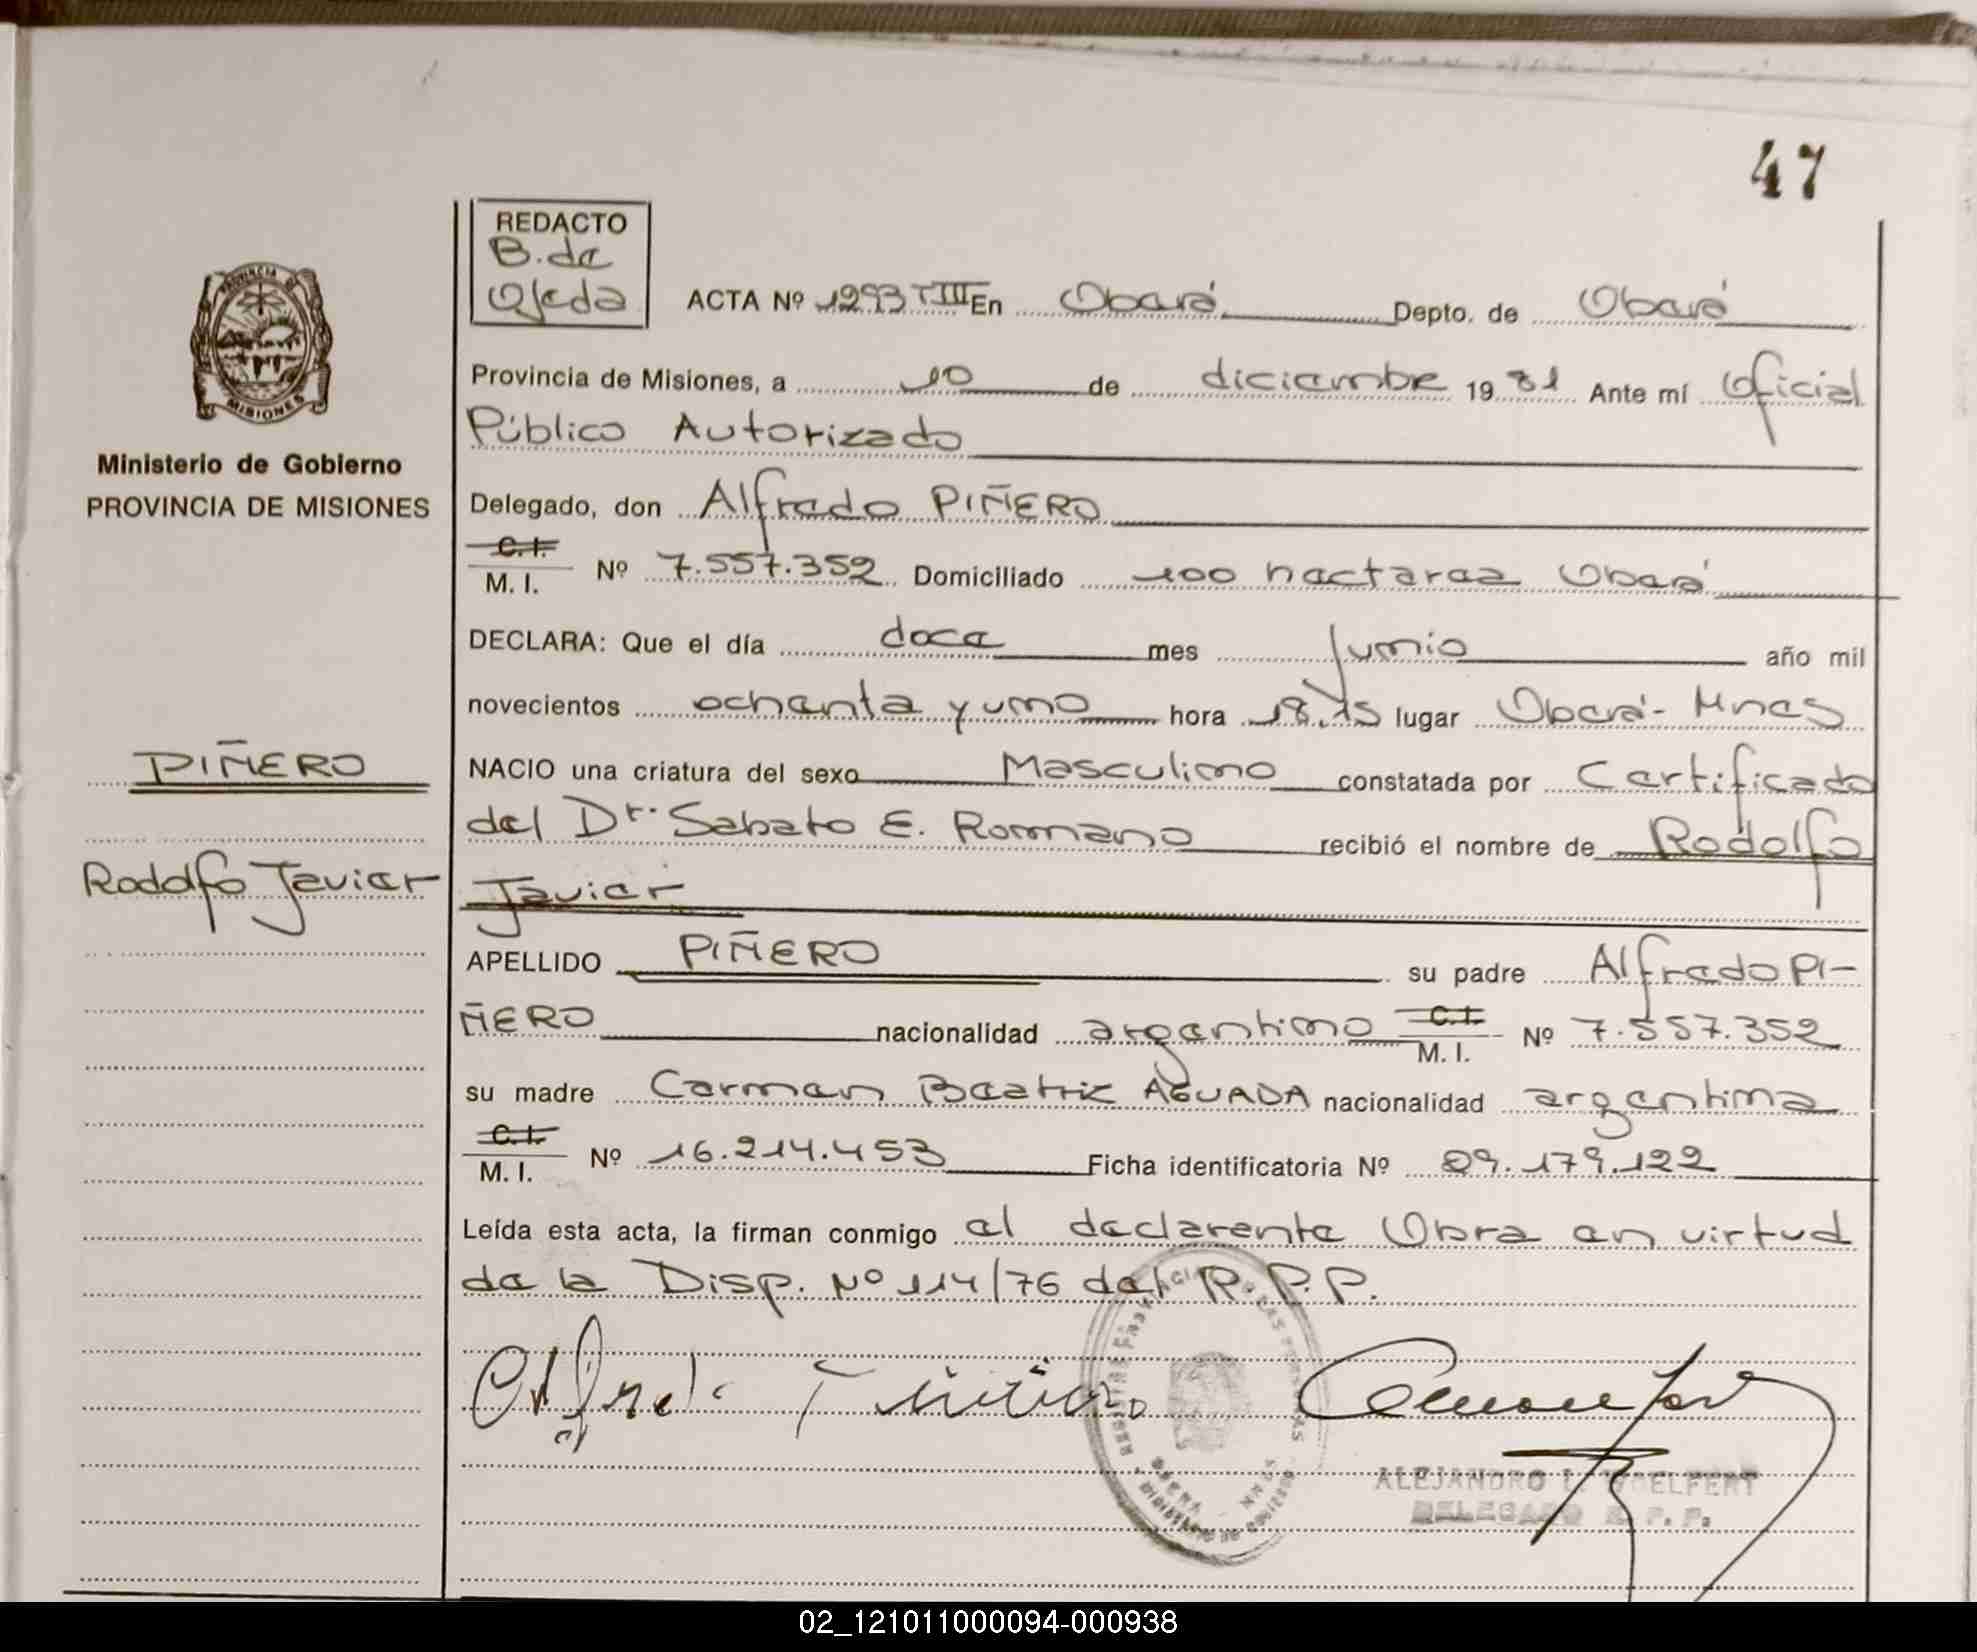 47
REDACTO
B. de
Ojeda
ACTA Nº 1293 TIII En Oberá Depto. de Oberá
Provincia de Misiones, a 10 de diciembre 19 81 Ante mí Oficial
Público Autorizado
Ministerio de Gobierno
PROVINCIA DE MISIONES
Delegado, don Alfredo PIÑERO
C.I.
M. I. Nº 7.557.352 Domiciliado 100 hectareas Oberá
DECLARA: Que el día doce mes Junio año mil
novecientos ochenta y uno hora 18,15 lugar Oberá - Mnes
PIÑERO
NACIO una criatura del sexo Masculino constatada por Certificado
del Dr. Sabato E. Romano recibió el nombre de Rodolfo
Rodolfo Javier
Javier
APELLIDO PIÑERO su padre Alfredo PI-
ÑERO nacionalidad argentino C.I. M. I. Nº 7.557.352
su madre Carmen Beatriz AGUADA nacionalidad argentina
C.I.
M. I. Nº 16.214.453 Ficha identificatoria Nº 09.179.122
Leída esta acta, la firman conmigo el declarente Obra en virtud
de la Disp. Nº 114/76 del R.P.P.
ALEJANDRO
DELEGADO R. P. P.
02_121011000094-000938